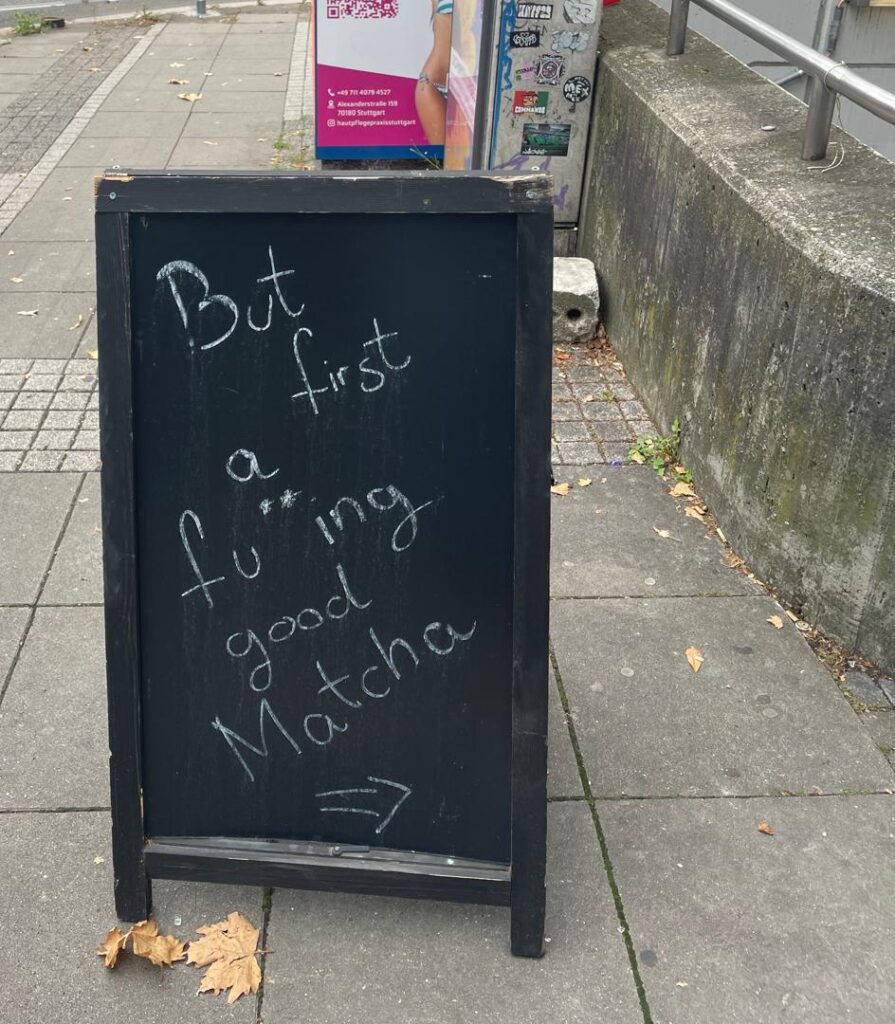 +49 711 4079 4527
Alexanderstraße 159
70180 Stuttgart
hautpflegepraxisstuttgart
COMMANDO
MEX
But
first
a
fu**ing
good
Matcha